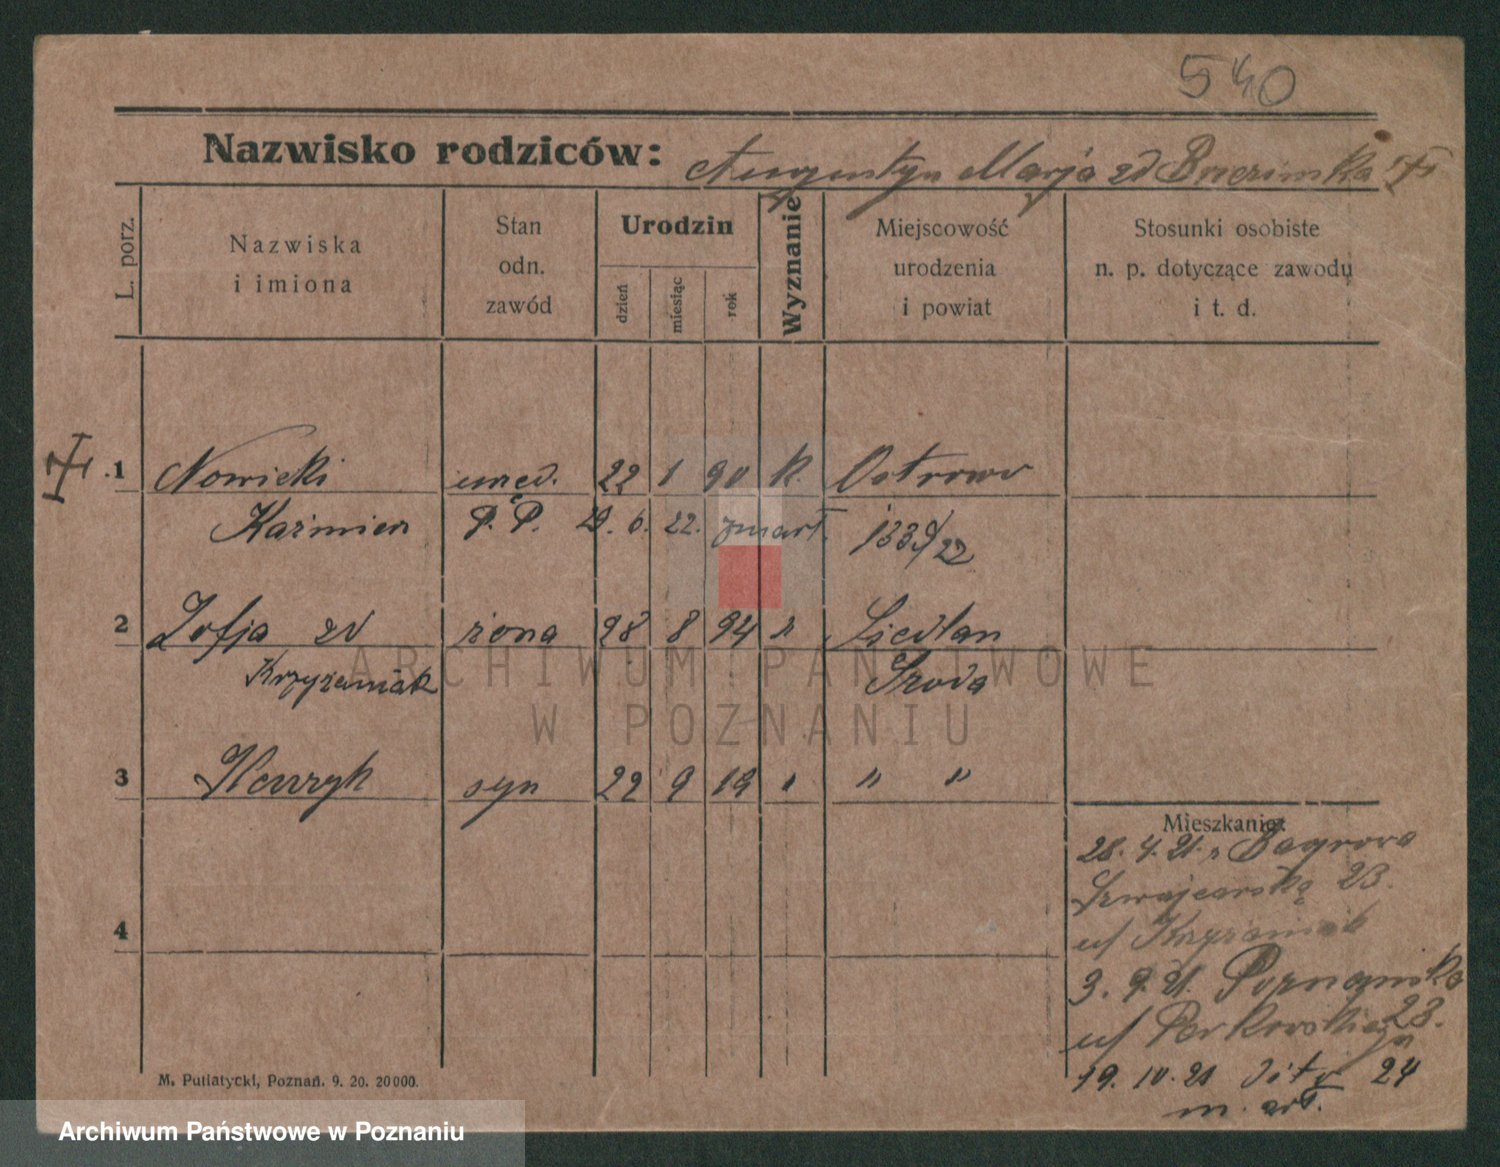 540
Nazwisko rodziców: Augustyn Marja zd
L. porz.
Nazwiska i imiona
Stan odn. zawód
Urodzin
dzień miesiąc rok
Wyznanie
Miejscowość urodzenia i powiat
Stosunki osobiste n. p. dotyczące zawodu i t. d.
1 Nowicki 22 1 90 k. Ostrowo
Kaźmierz P. P. 6. 22. zmarł. 1339/22
2 Zofja zd żona 28 8 94 "
Krzyżaniak Środa
3 Henryk syn 22 9 19 " " "
Mieszkanie:
28. 4. 21. z
Szwajcarska 23.
u/ Krzyżaniak
4
3. 9. 21. Poznańska
u/ 23.
19. 10. 21 24
M. Putiatycki, Poznań. 9. 20. 20000.
ARCHIWUM PAŃSTWOWE
W POZNANIU
Archiwum Państwowe w Poznaniu